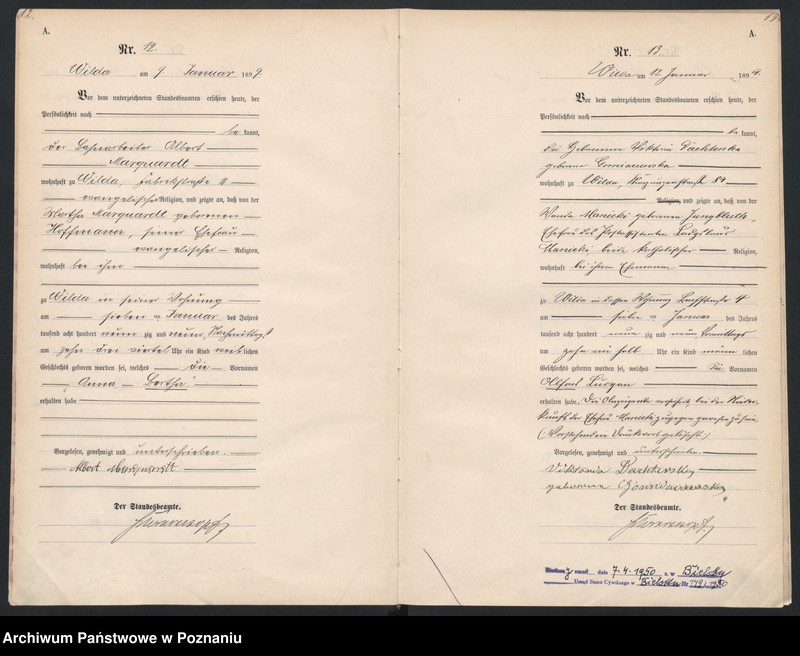 12.
A.
Nr. 12.
Wilda am 9 Januar 1899.
Vor dem unterzeichneten Standesbeamten erschien heute, der
Persönlichkeit nach
be kannt,
der Bahnarbeiter Albert
Marquardt
wohnhaft zu Wilda, Fabrikstraße
evangelischer Religion, und zeigte an, daß von der
Martha Marquardt geborenen
Hoffmann, seiner Ehefrau
evangelischer Religion,
wohnhaft bei ihm
zu Wilda in seiner Wohnung
am sieben ten Januar des Jahres
tausend acht hundert neun zig und neun, Nachmittags
um zehn drei viertel Uhr ein Kind weib lichen
Geschlechts geboren worden sei, welches die Vornamen
Anna Bertha
erhalten habe
Vorgelesen, genehmigt und unterschrieben.
Albert Marquardt
Der Standesbeamte.
13
A.
Nr. 13.
Wilda am 12 Januar 1899.
Vor dem unterzeichneten Standesbeamten erschien heute, der
Persönlichkeit nach
be kannt,
die Hebamme Viktoria
geborene
wohnhaft zu Wilda, 84
Religion, und zeigte an, daß von der
Wanda Manicki geborenen Jungblut,
Ehefrau des Postassistenten Ladislaus
Manicki beide katholischer Religion,
wohnhaft bei ihrem Ehemann
zu Wilda in dessen Wohnung 4
am sieben ten Januar des Jahres
tausend acht hundert neun zig und neun, Vormittags
um zehn ein halb Uhr ein Kind männ lichen
Geschlechts geboren worden sei, welches die Vornamen
Alfons
erhalten habe. Die Anzeigende versichert, bei der Nieder-
kunft der Ehefrau Manicki zugegen gewesen zu sein
(Vorstehend ein Druckwort gelöscht.)
Vorgelesen, genehmigt und unterschrieben.
Viktoria
geborene
Der Standesbeamte.
dnia 7.4.1950 r. w Bielsku
Urząd Stanu Cywilnego w Bielsku Nr
Archiwum Państwowe w Poznaniu